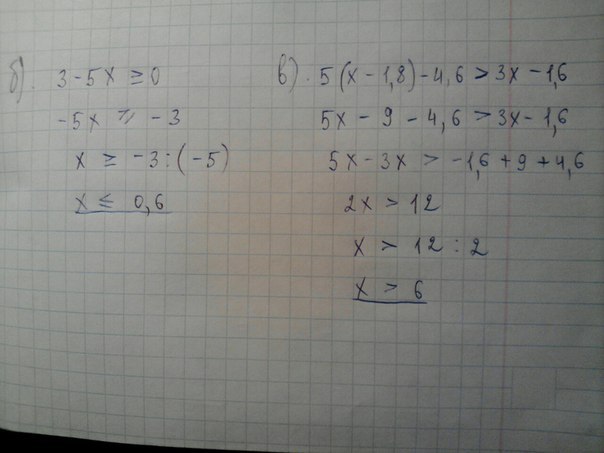 б). 3 - 5x ≥ 0
-5x ≥ -3
x ≥ -3 : (-5)
x ≤ 0,6
в). 5(x - 1,8) - 4,6 > 3x - 1,6
5x - 9 - 4,6 > 3x - 1,6
5x - 3x > -1,6 + 9 + 4,6
2x > 12
x > 12 : 2
x > 6